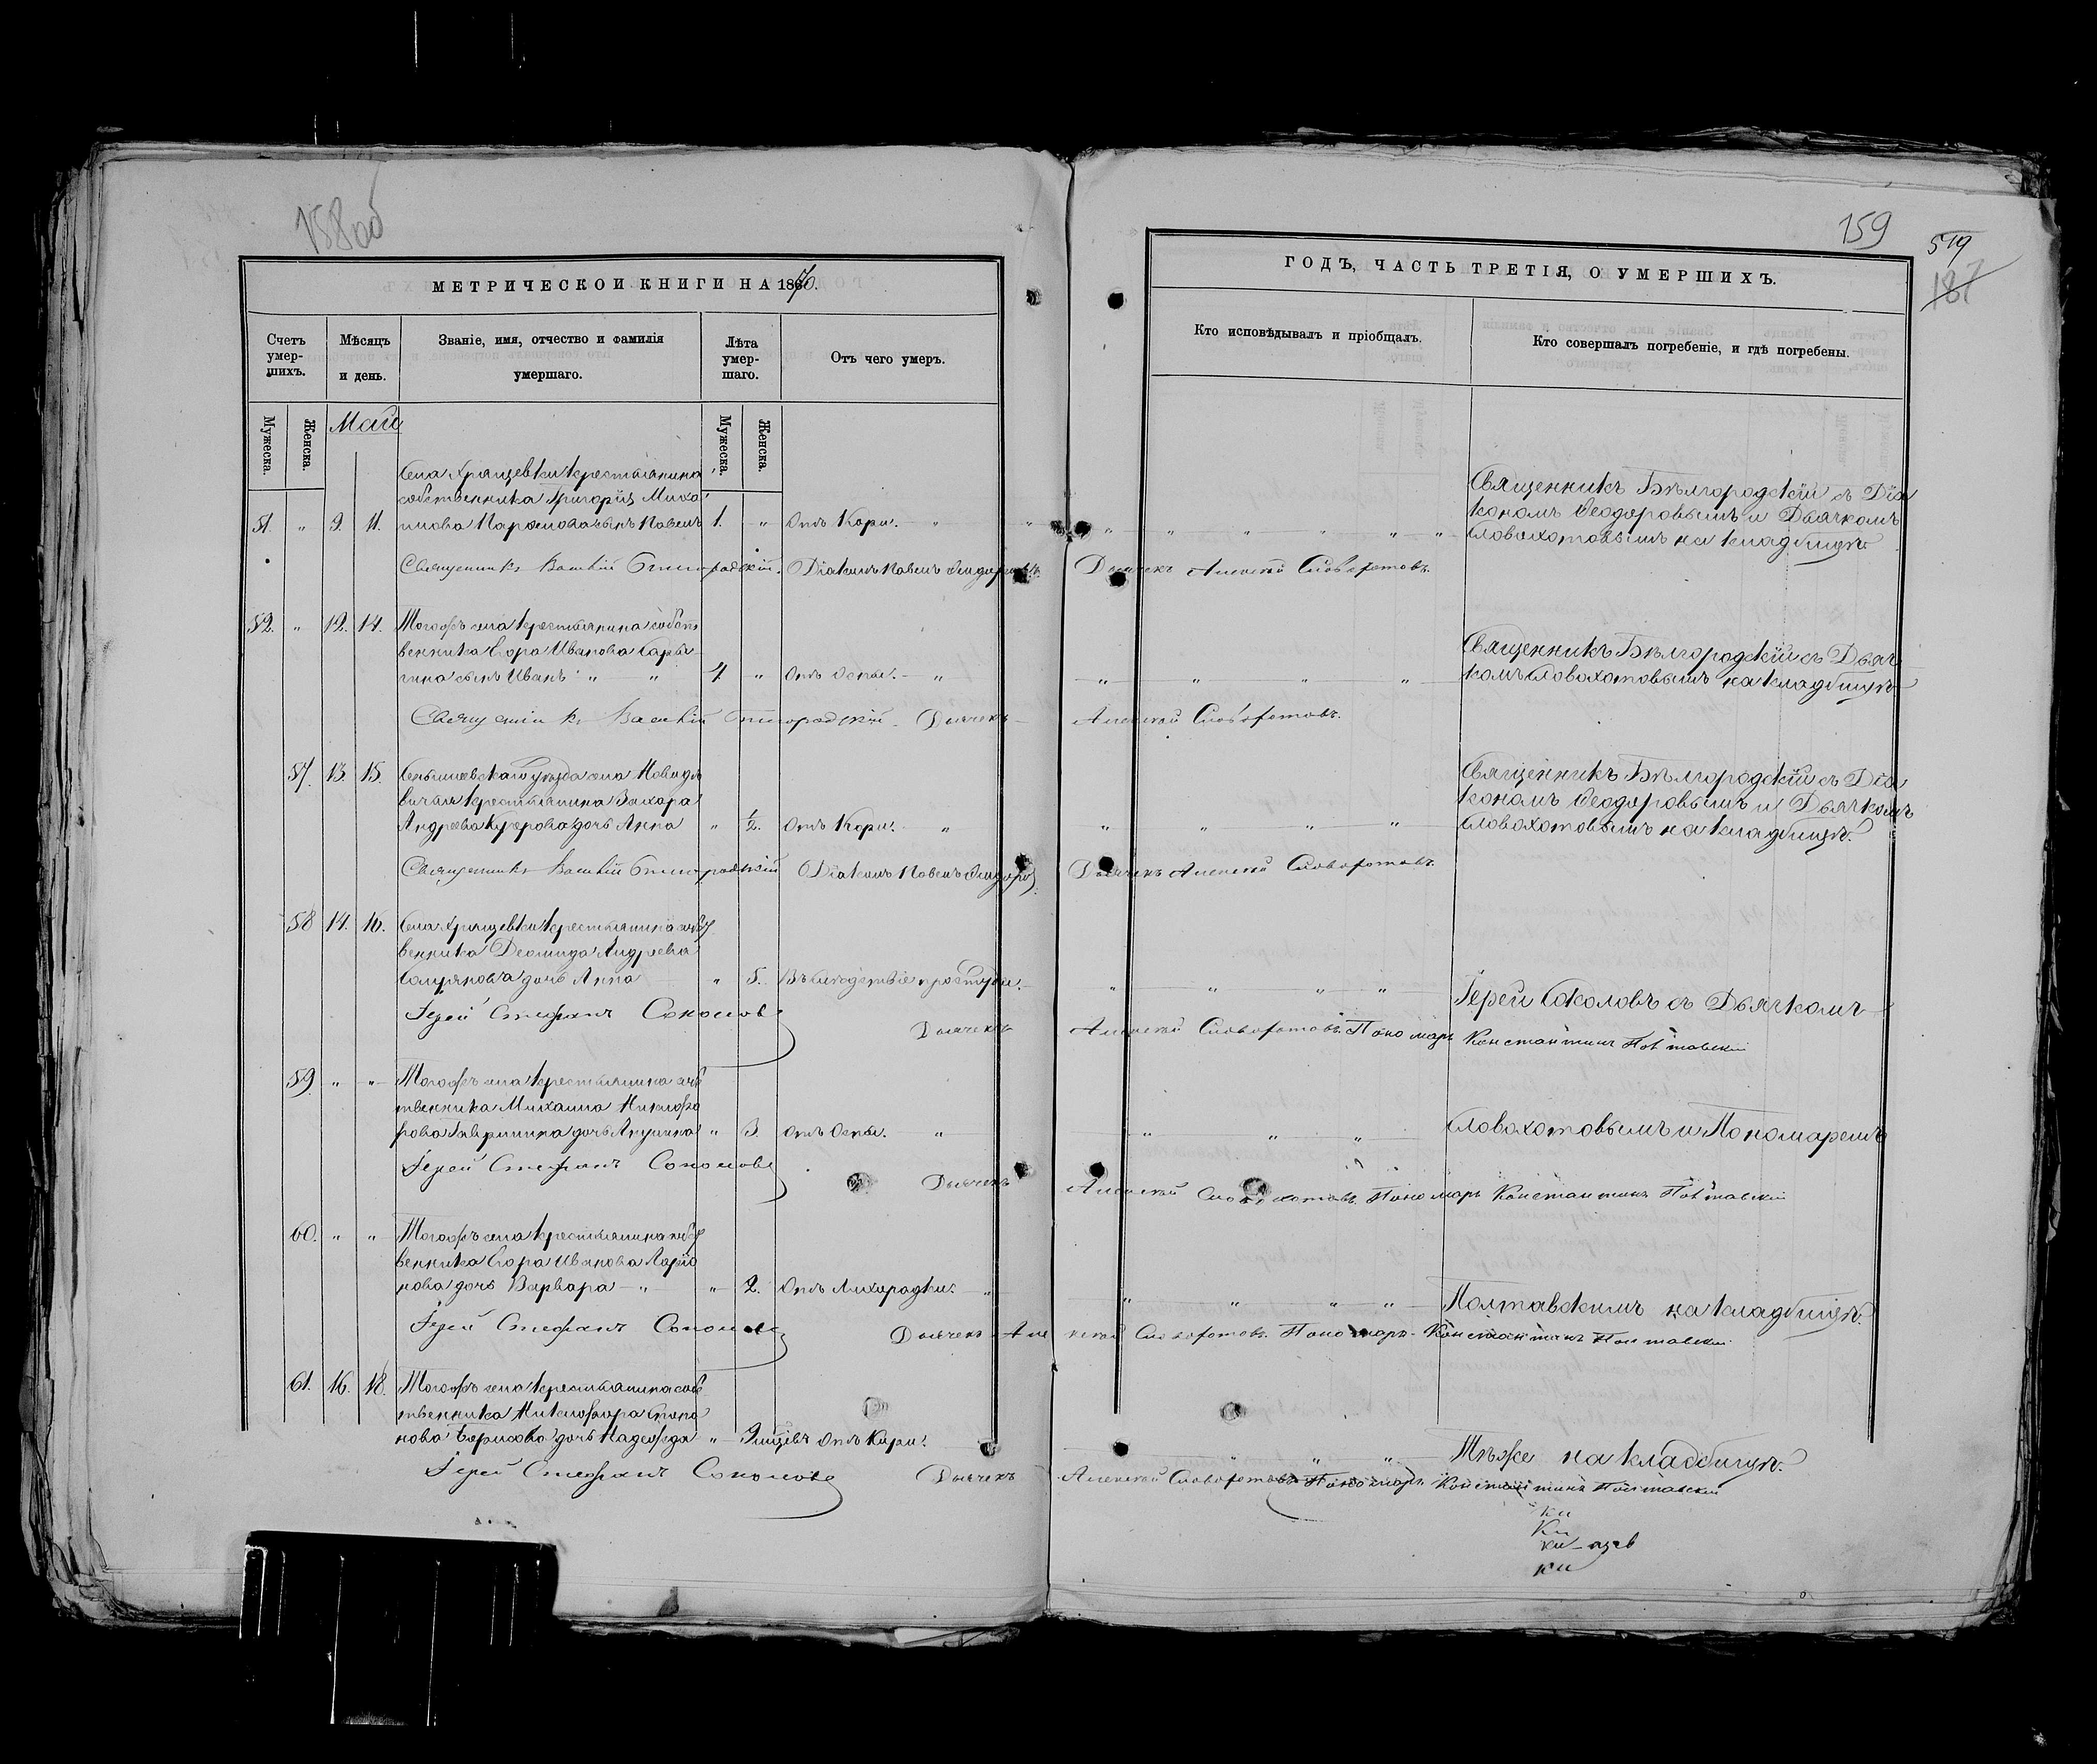 158 об
159
519
187
МЕТРИЧЕСКОЙ КНИГИ НА 1870.
ГОДЪ, ЧАСТЬ ТРЕТІЯ, О УМЕРШИХЪ.
Счетъ умер-шихъ.
Мѣсяцъ и день.
Званіе, имя, отчество и фамилія умершаго.
Лѣта умер-шаго.
Отъ чего умеръ.
Кто исповѣдывалъ и пріобщалъ.
Кто совершалъ погребеніе, и гдѣ погребены.
Мужеска.
Женска.
Май
Мужеска.
Женска.
Села Хрящевки крестьянина
собственника Григорія Миха
51. " 9. 11. сынъ Павелъ 1. " Отъ Кори. "
Священникъ Бѣлгородскій съ Діа
кономъ Ѳеодоровымъ и Дьячкомъ
Словохотовымъ на кладбищѣ.
Священникъ Василій Бѣлгородскій. Діаконъ Павелъ Ѳеодоровъ. Дьячекъ Алексѣй Словохотовъ.
52. " 12. 14. Тогожъ села крестьянина собст
венника Егора Иванова
сынъ Иванъ " " 4 " Отъ Оспы. "
Священникъ Бѣлгородскій съ Дьяч
комъ Словохотовымъ на кладбищѣ
Священникъ Василій Бѣлгородскій. Дьячекъ Алексѣй Словохотовъ.
57. 13. 15. уѣзда села
крестьянина Захара
Андреева дочь Анна " ½. Отъ Кори. "
Священникъ Бѣлгородскій съ Діа
кономъ Ѳеодоровымъ и Дьячкомъ
Словохотовымъ на кладбищѣ.
Священникъ Василій Бѣлгородскій Діаконъ Павелъ Ѳеодоровъ. Дьячекъ Алексѣй Словохотовъ.
58 14. 16. Села Хрящевки крестьянина собст
венника Деомида Андреева
дочь Анна " 5. Въ слѣдствіе простуды.
Іерей Соколовъ съ Дьячкомъ
Іерей Стефанъ Соколовъ Дьячекъ Алексѣй Словохотовъ. Пономарь Константинъ Полтавскій
59. " " Тогожъ села крестьянина собс
твенника Михаила Никифо
рова дочь " 3. Отъ Оспы. "
Словохотовымъ и Пономаремъ
Іерей Стефанъ Соколовъ Дьячекъ Алексѣй Словохотовъ. Пономарь Константинъ Полтавскій
60. " " Тогожъ села крестьянина собст
венника Егора Иванова Ларіо
нова дочь Варвара " " 2. Отъ Лихорадки. "
Полтавскимъ на кладбищѣ.
Іерей Стефанъ Соколовъ Дьячекъ Алексѣй Словохотовъ. Пономарь Константинъ Полтавскій
61. 16. 18. Тогожъ села крестьянина собс
твенника Никифора
Борисова дочь Надежда " Отъ Кори.
Тѣже на кладбищѣ.
Іерей Стефанъ Соколовъ Дьячекъ Алексѣй Словохотовъ Пономарь Константинъ Полтавскій
ки
ки
ки
ки